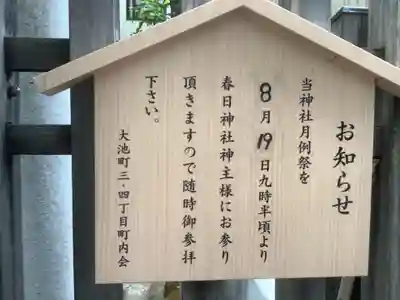 お知らせ
当神社月例祭を
8月19日九時半頃より
春日神社神主様にお参り
頂きますので随時御参拝
下さい。
大池町三・四丁目町内会